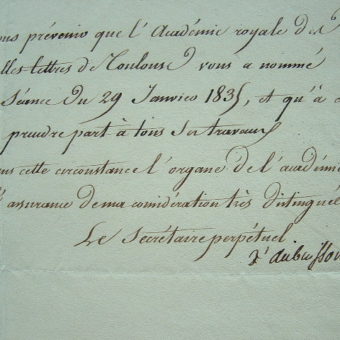 ous préviens que l'Académie royale des
lles lettres de Toulouse vous a nommé
Séance du 29 Janvier 1835, et qu'à c
prendre part à tous ses travaux
ans cette circonstance l'organe de l'académie
l'assurance de ma considération très distinguée
Le Secrétaire perpétuel.
d'aubuisson